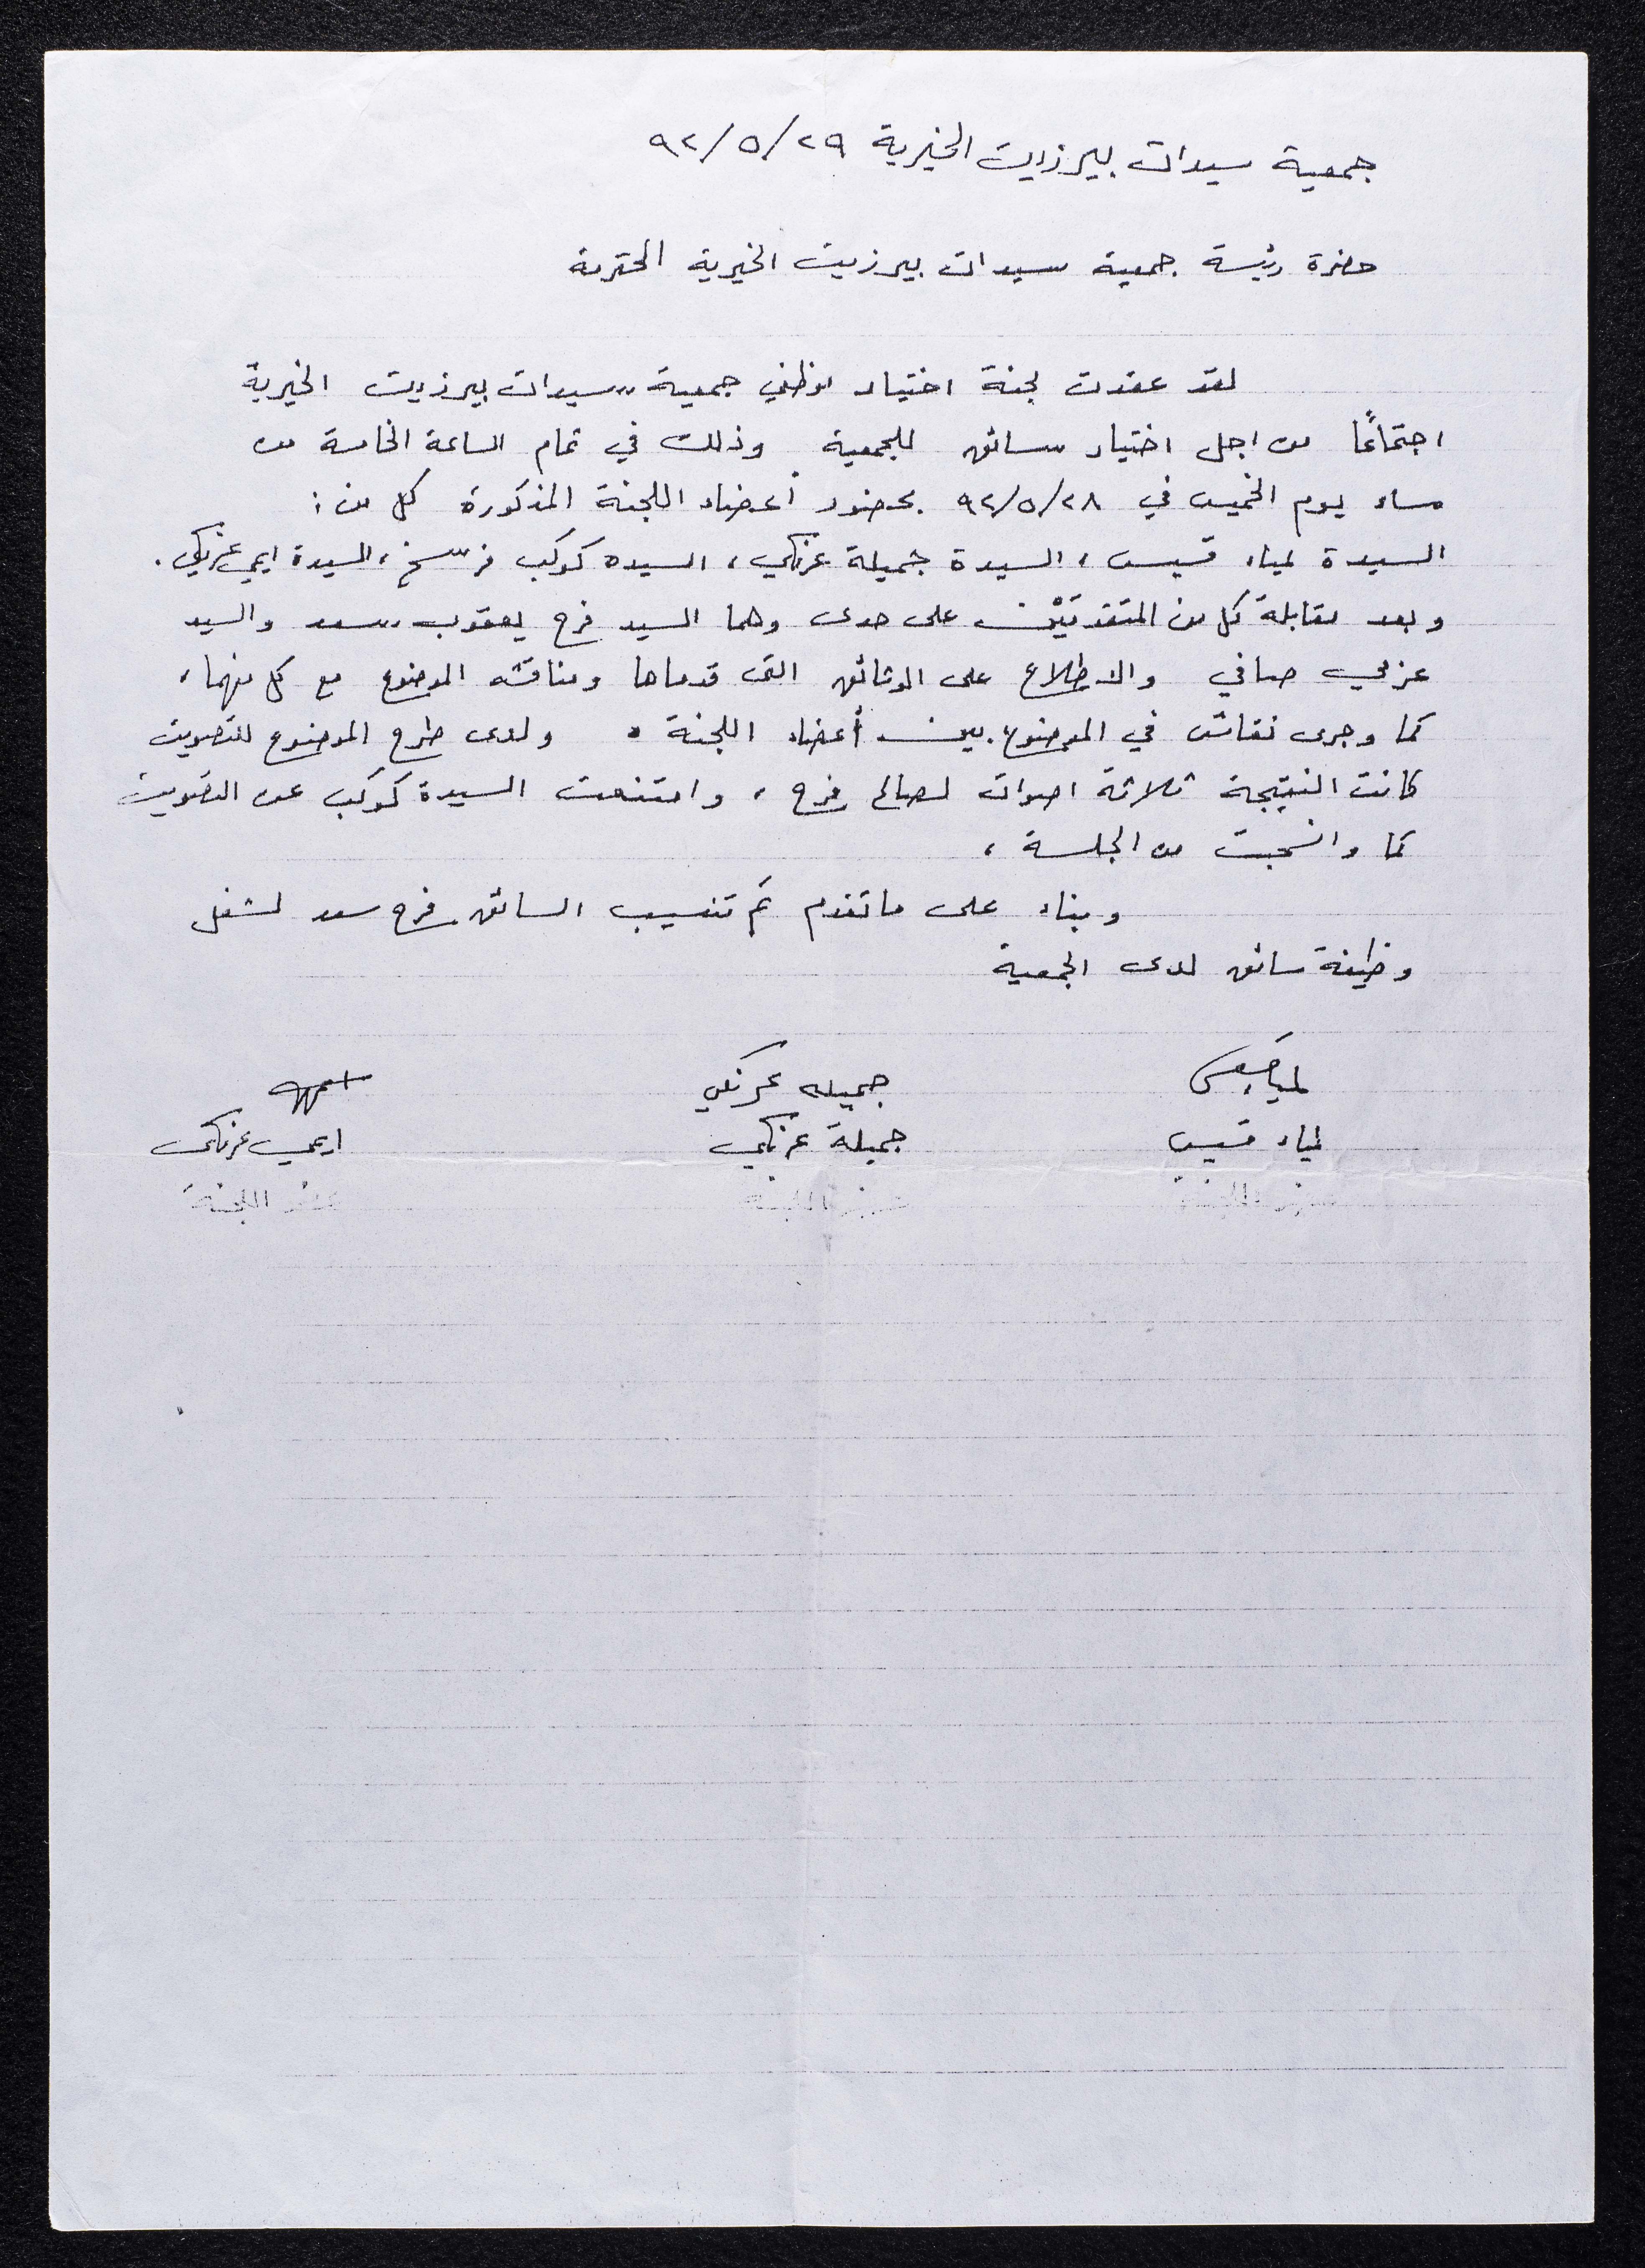 جمعية سيدات بيرزيت الخيرية ٩٢/٥/٢٩
حضرة رئيسة جمعية سيدات بيرزيت الخيرية المحترمة
لقد عقدت لجنة اختيار موظفي جمعية سيدات بيرزيت الخيرية
اجتماعًا من اجل اختيار سائق للجمعية وذلك في تمام الساعة الخامسة من
مساء يوم الخميس في ٩٢/٥/٢٨ بحضور أعضاء اللجنة المذكورة كل من :
السيدة لمياء قسيس ، السيدة جميلة عرنكي ، السيده كوكب فرسخ ، السيدة ايمي عرنكي .
وبعد مقابلة كل من المتقدمَيْن على حدى وهما السيد فرح يعقوب سعد والسيد
عزمي صافي والاطلاع على الوثائق التي قدماها ومناقشه الموضوع مع كل منهما ،
كما وجرى نقاش في الموضوع بين أعضاء اللجنة . ولدى طرح الموضوع للتصويت
كانت النتيجة ثلاثة اصوات لصالح فرح ، وامتنعت السيدة كوكب عن التصويت
كما وانسحبت من الجلسة ،
وبناء على ما تقدم تم تنسيب السائق فرح سعد لشغل
وظيفة سائق لدى الجمعية
جميله عرنكي
لمياء قسيس جميلة عرنكي ايمي عرنكي
عضو اللجنة عضو اللجنة عضو اللجنة